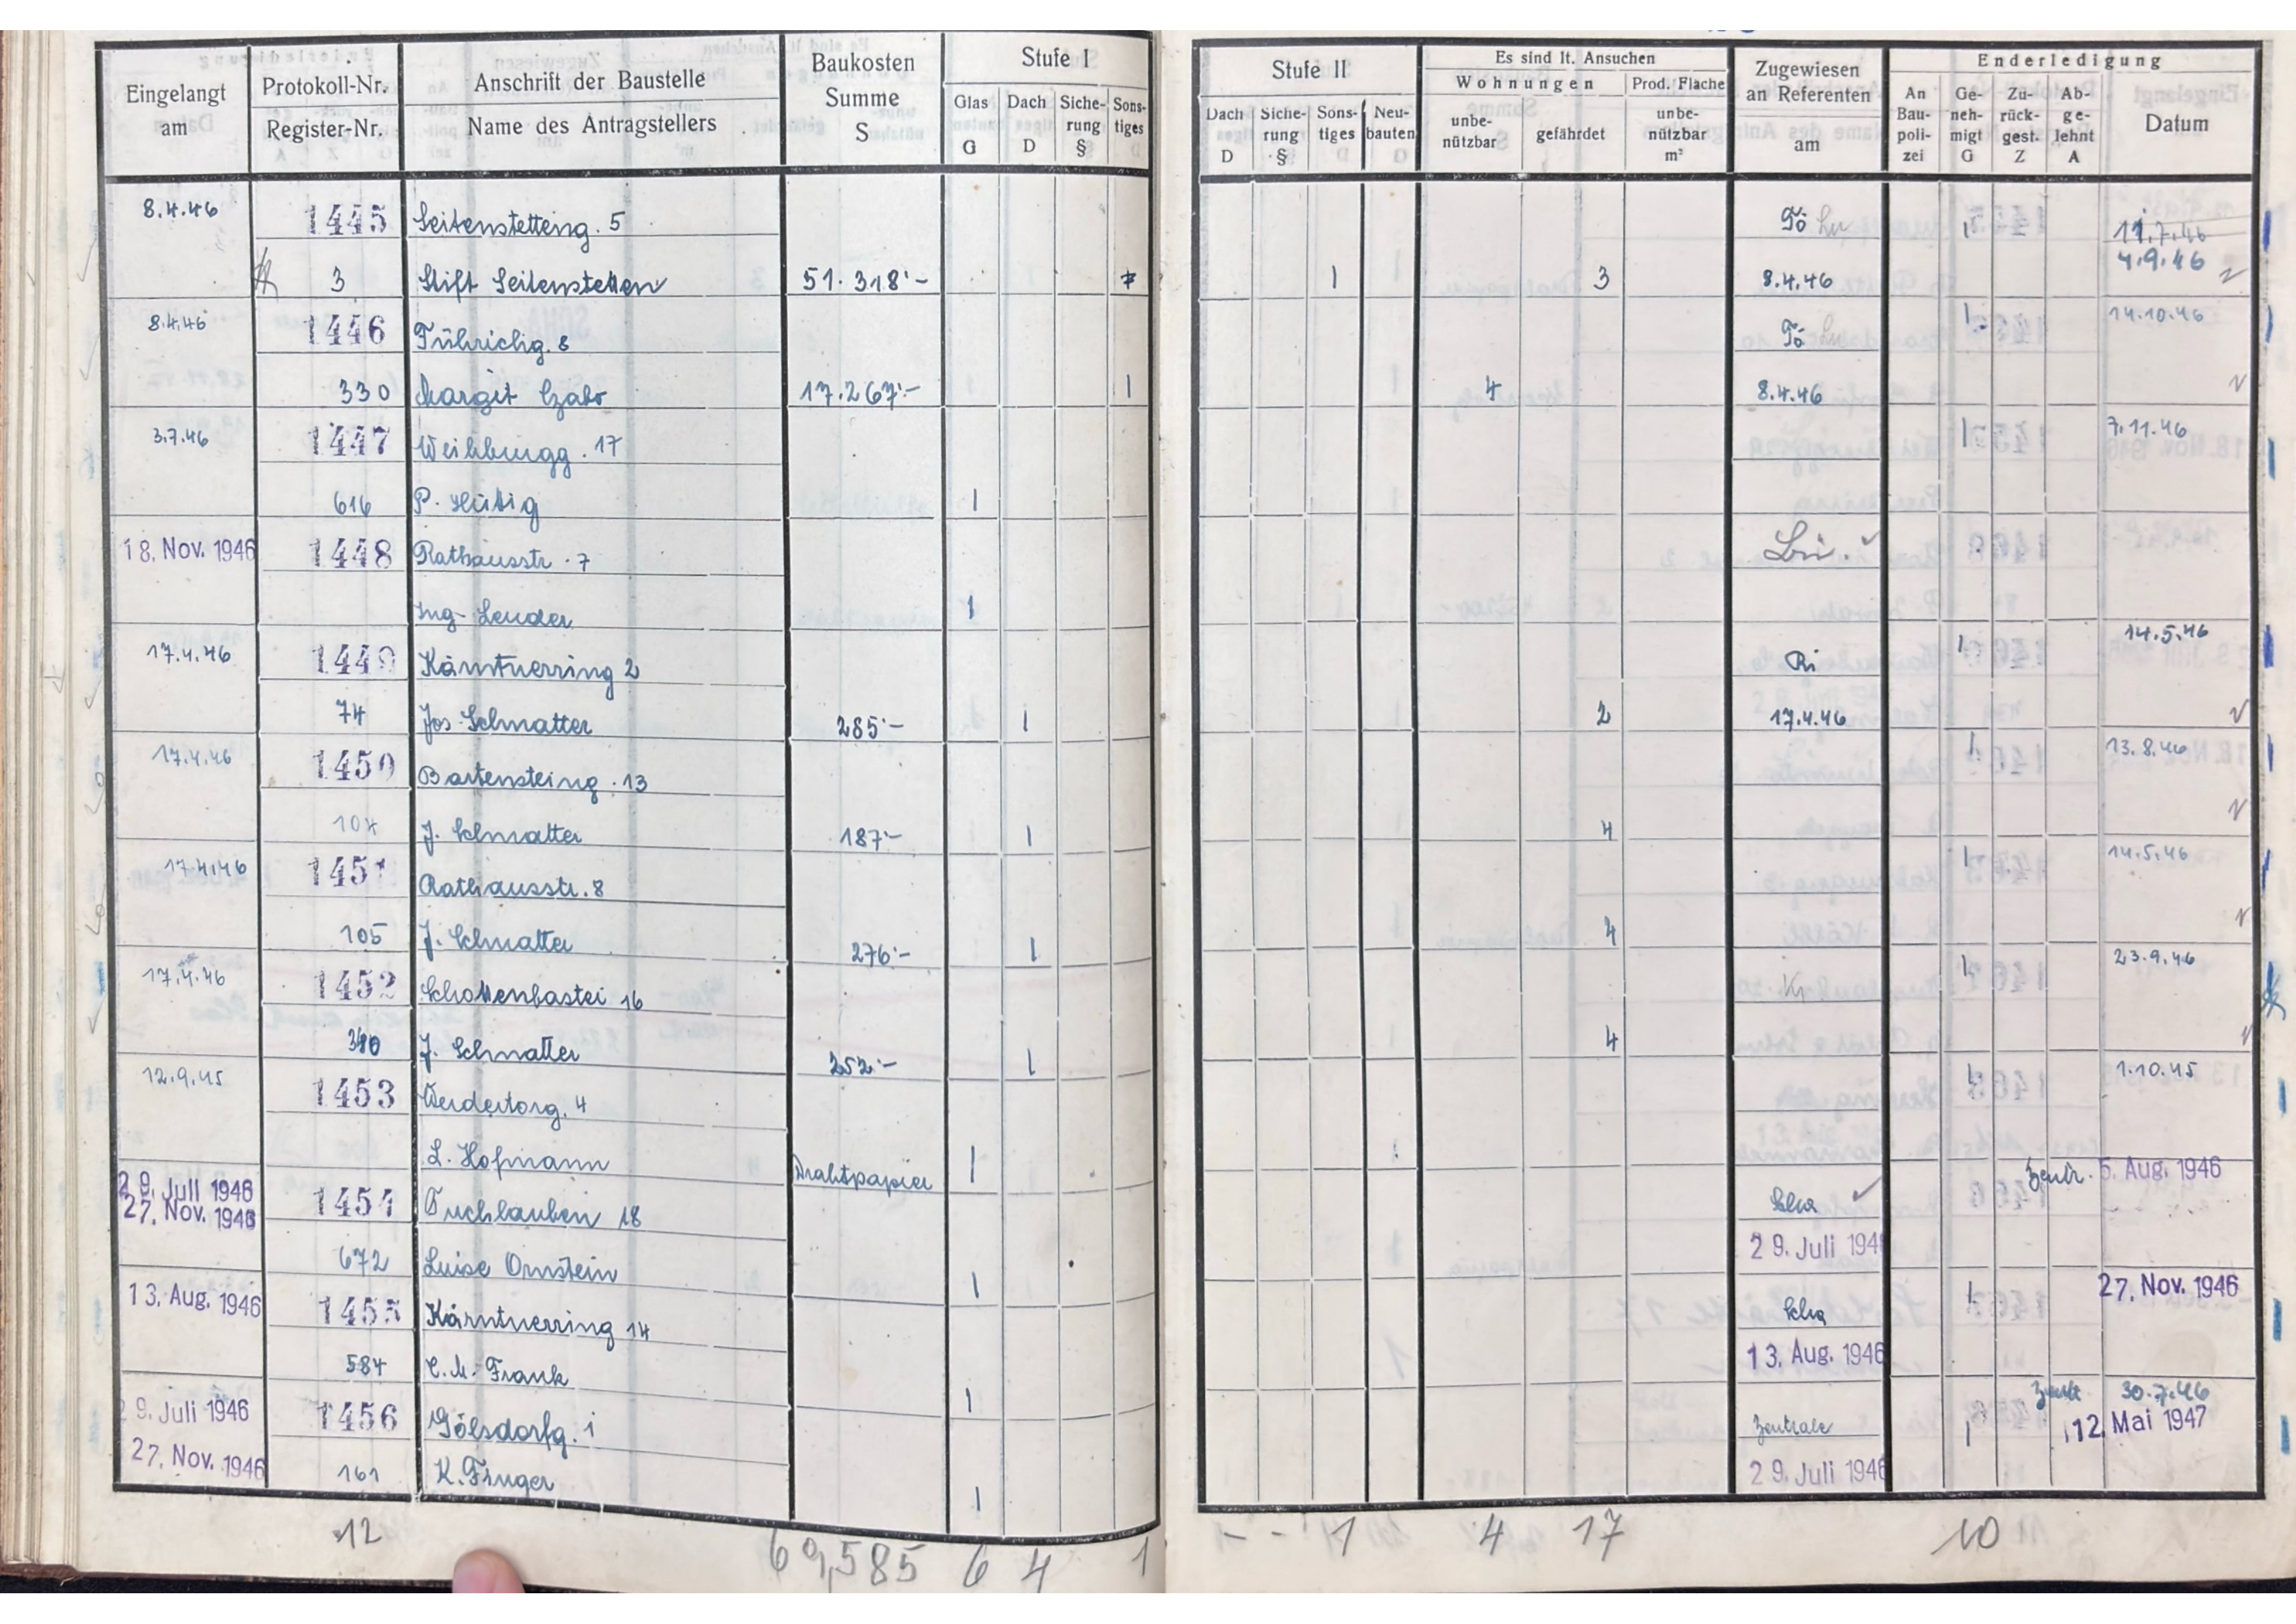 Eingelangt am | Protokoll-Nr. Register-Nr. | Anschrift der Baustelle Name des Antragstellers | Baukosten Summe S | Stufe I
Glas G | Dach D | Siche-rung § | Sons-tiges
Stufe II | Es sind lt. Ansuchen | Zugewiesen an Referenten am | Enderledigung
Dach D | Siche-rung § | Sons-tiges | Neu-bauten | Wohnungen unbe-nützbar | gefährdet | Prod. Fläche unbe-nützbar m² | An Bau-poli-zei | Ge-neh-migt G | Zu-rück-gest. Z | Ab-ge-lehnt A | Datum
8.4.46 | 1445 | Seitenstetteng. 5 | Tö | 1 | 11.7.46
3 | Stift Seitenstetten | 51.318'- | 1 | 3 | 8.4.46 | 4.9.46
8.4.46 | 1446 | Führichg. 8 | Tö | 1 | 14.10.46
330 | Margit Czabo | 17.267'- | 1 | 4 | 8.4.46
3.7.46 | 1447 | Weihburgg. 17 | 1 | 7.11.46
616 | P. Hübig | 1
18. Nov. 1946 | 1448 | Rathausstr. 7
Ing. Leuder | 1
17.4.46 | 1449 | Kärntnerring 2 | Ri | 1 | 14.5.46
74 | Jos. Schmatter | 285'- | 1 | 2 | 17.4.46
17.4.46 | 1450 | Bartensteing. 13 | 1 | 13.8.46
104 | J. Schmatter | 187'- | 1 | 4
17.4.46 | 1451 | Rathausstr. 8 | 1 | 14.5.46
105 | J. Schmatter | 276'- | 1 | 4
17.4.46 | 1452 | Schottenbastei 16 | 1 | 23.9.46
J. Schmatter | 252'- | 1 | 4
12.9.45 | 1453 | Werdertorg. 4 | 1 | 1.10.45
L. Hofmann | Drahtpapier | 1
29. Juli 1946 27. Nov. 1946 | 1454 | Tuchlauben 18 | Scha | Zentr. 5. Aug. 1946
672 | Luise Ornstein | 1 | 29. Juli 194
13. Aug. 1946 | 1455 | Kärntnerring 14 | Scha | 1 | 27. Nov. 1946
584 | C. M. Frank | 1 | 13. Aug. 1946
9. Juli 1946 | 1456 | Gölsdorfg. 1 | Zentrale | 1 | 30.7.46 12. Mai 1947
27. Nov. 1946 | 161 | K. Finger | 1 | 29. Juli 1946
12 | 69,585 | 6 | 4 | 1 | - | - | 1 | 4 | 17 | 10